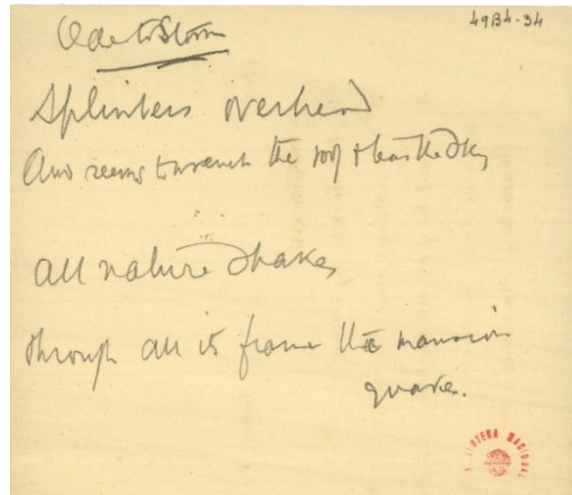 49B4-34
Ode to Storm
Splinters overhead
And seems to wrench the roof & bear the sky
All nature shakes
Through all its frame the mansion
quakes.
BIBLIOTECA NACIONAL